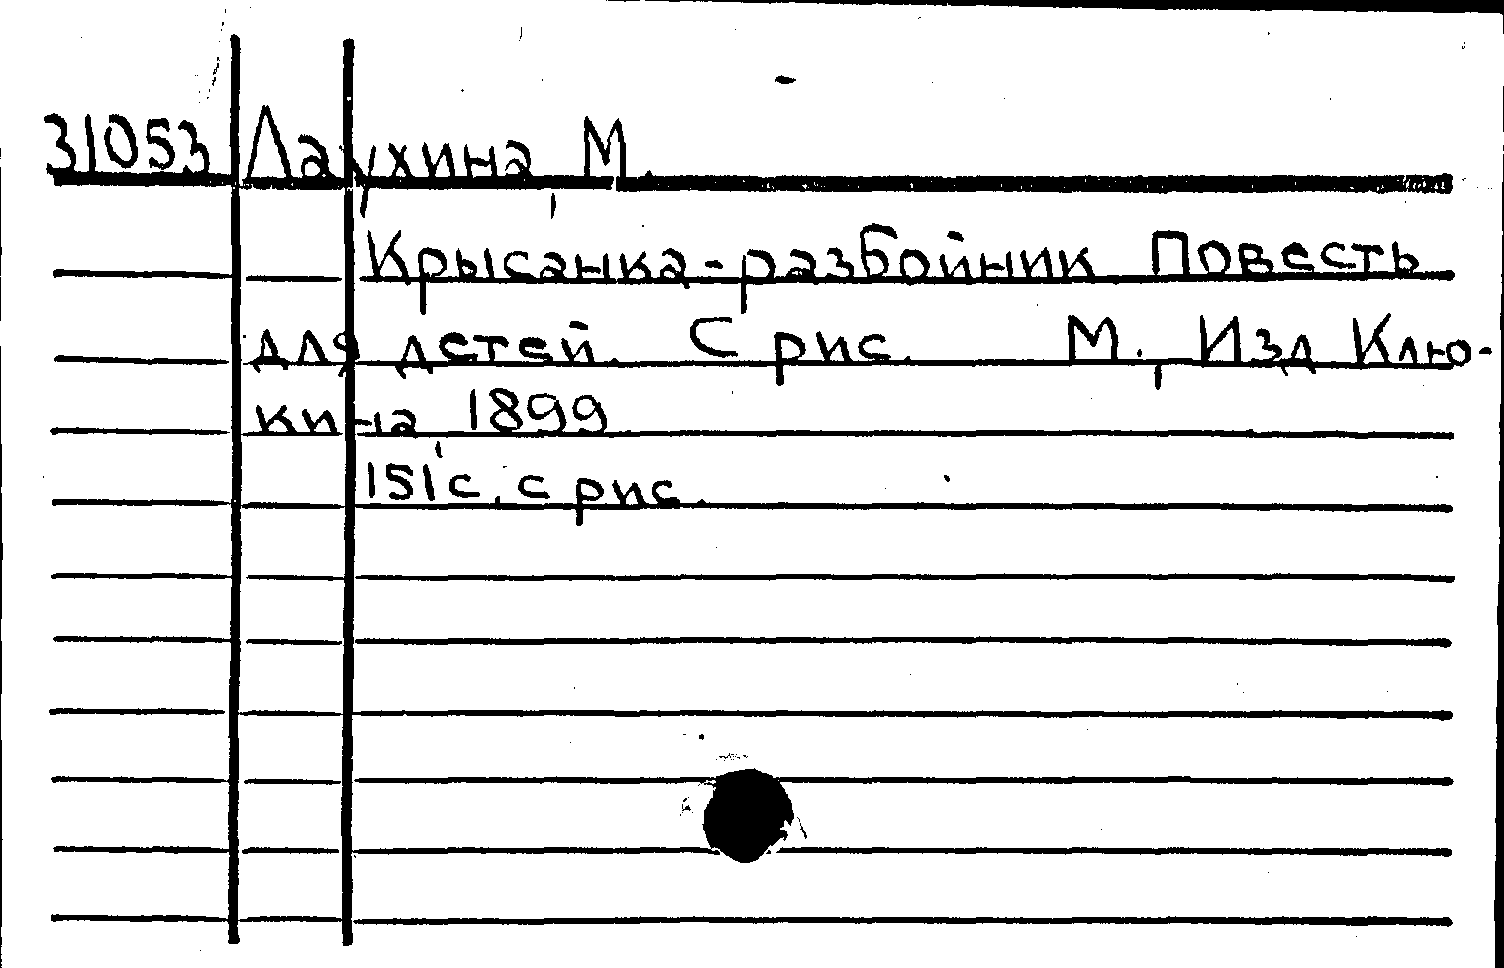 31053 Лаухина, М.
Крысанка-разбойник Повесть
для детей. С рис. М., Изд Клю-
кина, 1899
151 с. с рис.